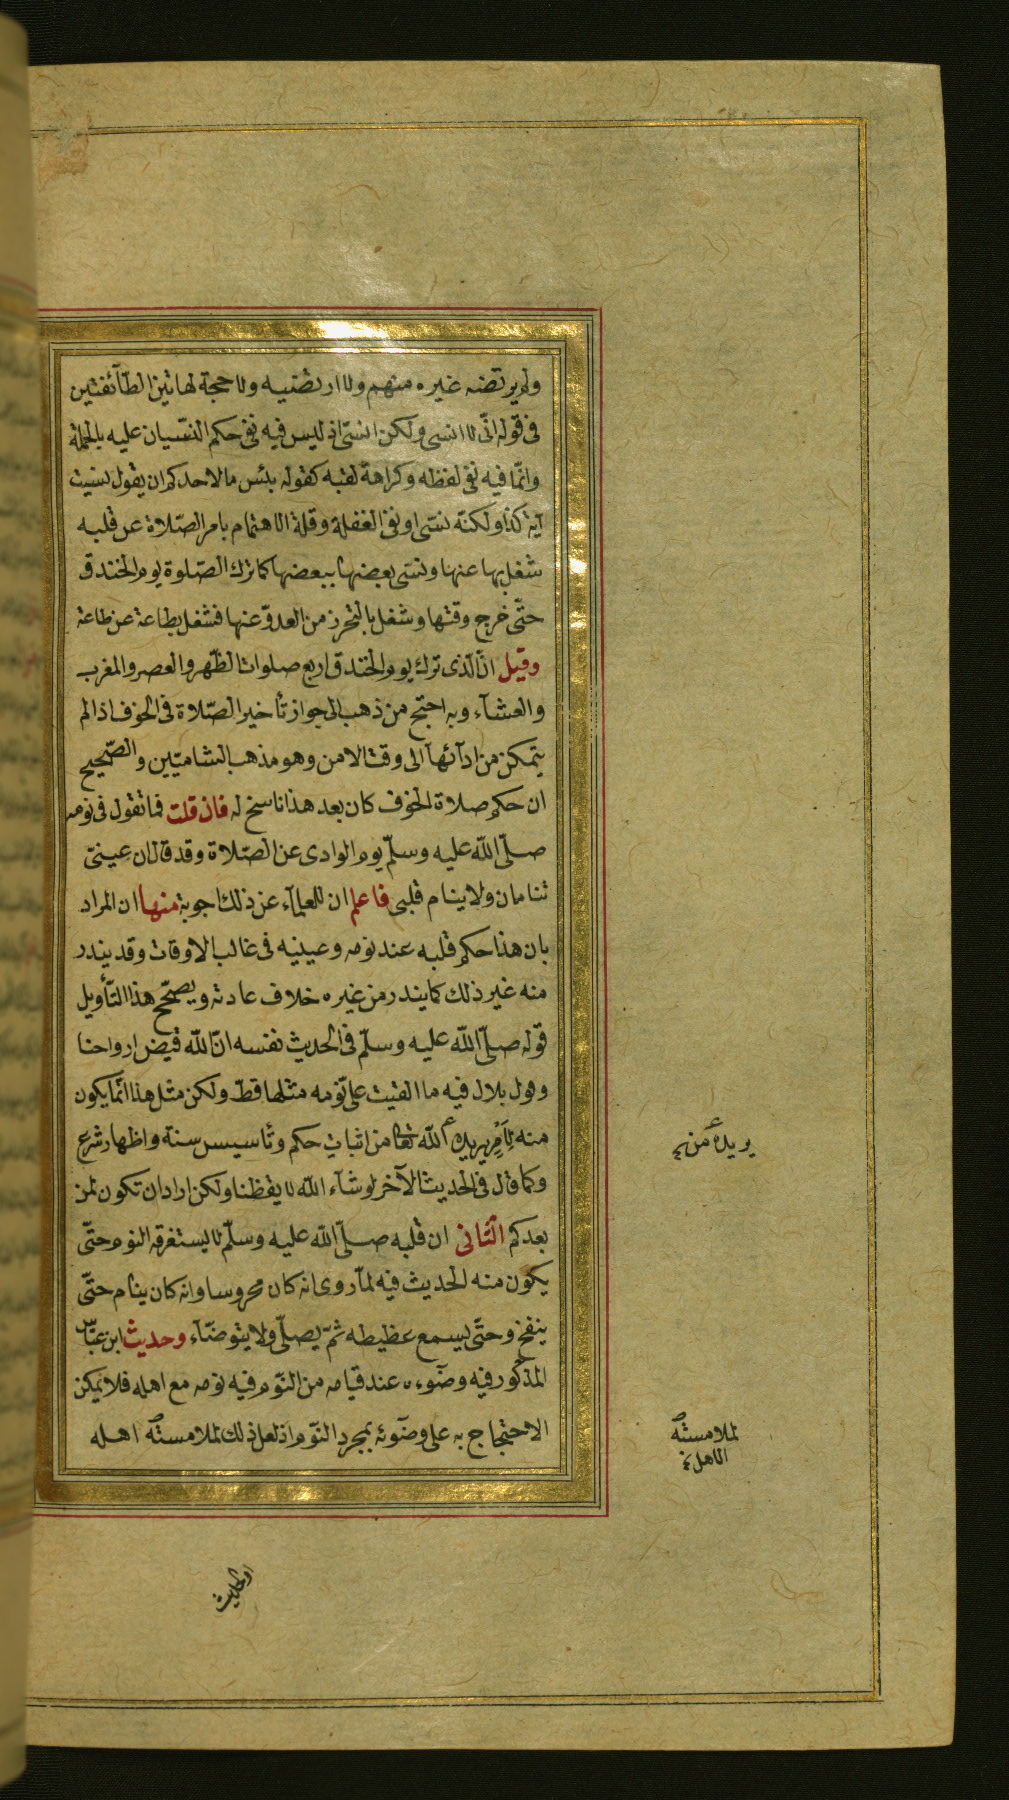 ولم يرتضه غيره منهم ولا ارتضيه ولا حجة لهاتين الطّآئفتين
فى قوله انّى لا انسى ولكن انسّى اذ ليس فيه نفى حكم النّسيان عليه بالجملة
وانّما فيه نفى لفظه وكراهة لقبه كقوله بئس ما لاحدكم ان يقول نسيت
آية كذا ولكنّه نسّى او نفى الغفلة وقلة الاهتمام بامر الصّلاة عن قلبه
شغل بها عنها ونسى بعضها ببعضها كما ترك الصّلوة يوم الخندق
حتّى خرج وقتها وشغل بالتّحرز من العدوّ عنها فشغل بطاعة عن طاعة
وقيل انّ الّذى ترك يوم الخندق اربع صلوات الظّهر والعصر والمغرب
والعشآء وبه احتج من ذهب الى جواز تأخير الصّلاة فى الخوف اذا لم
يتمكن من ادآئهآ الى وقت الامن وهو مذهب الشاميّين والصّحيح
ان حكم صلاة الخوف كان بعد هذا ناسخ له فان قلت فما تقول فى نومه
صلّى اللّه عليه وسلّم يوم الوادى عن الصّلاة وقد قال ان عينىّ
تنامان ولا ينام قلبى فاعلم ان للعلمآء عن ذلك اجوبة منها ان المراد
بان هذا حكم قلبه عند نومه وعينيه فى غالب الاوقات وقد يندر
منه غير ذلك كما يندر من غيره خلاف عادته ويصحّح هذا التّأويل
قوله صلّى اللّه عليه وسلّم فى الحديث نفسه انّ اللّه قبض ارواحنا
وقول بلال فيه ما القيت علىّ نومه مثلها قطّ ولكن مثل هذا انّما يكون
منه لِاَمْرٍ يريده اللّه تعا من اثبات حكم وتاسيس سنة واظهار شرع
وكما قال فى الحديث الآخر لو شآء اللّه لايقظنا ولكن اراد ان تكون لمن
بعدكم الثّانى ان قلبه صلّى اللّه عليه وسلّم لا يستغرقه النوم حتّى
يكون منه الحديث فيه لمآ روى انه كان محروسا وانه كان ينام حتّى
ينفخ وحتّى يسمع غطيطه ثمّ يصلّى ولا يتوضّآء وحديث ابن عبّاس
المذكور فيه وضوءه عند قيامه من النّوم فيه نومه مع اهله فلا يمكن
الاحتجاج به على وضوئه بمجرد النّوم اذ لعل ذلك لملامسته اهله
يريده من
لملامسته
الاهل
او لحديث